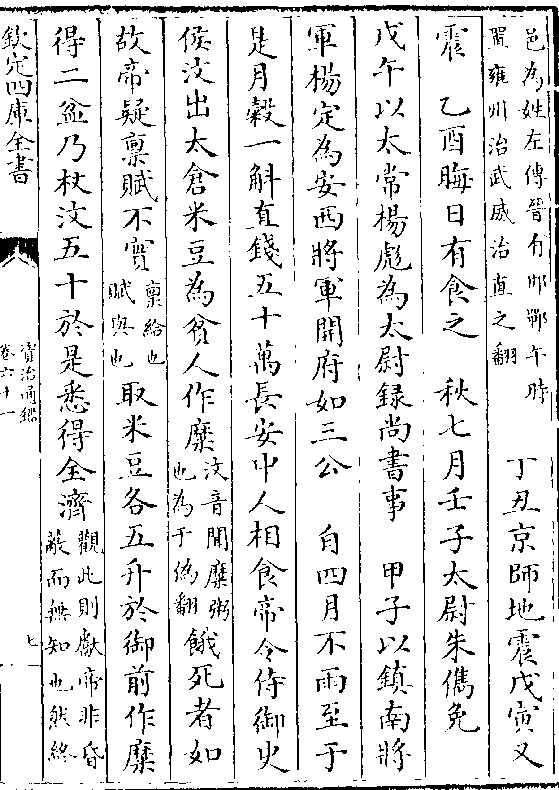 邑為姓左傳晉有邯鄲午時
置雍州治武威治直之翻
丁丑京師地震戊寅又
震　乙酉晦日有食之　秋七月壬子太尉朱儁免
戊午以太常楊彪為太尉録尚書事　甲子以鎮南將
軍楊定為安西將軍開府如三公　自四月不雨至于
是月穀一斛直錢五十萬長安中人相食帝令侍御史
侯汶出太倉米豆為貧人作糜
汶音聞糜粥
也為于偽翻
餓死者如
故帝疑禀賦不實
禀給也
賦與也
取米豆各五升於御前作糜
得二盆乃杖汶五十於是悉得全濟
觀此則獻帝非昏
蔽而無知也然終
欽定四庫全書
資治通鑑
卷六十一
七